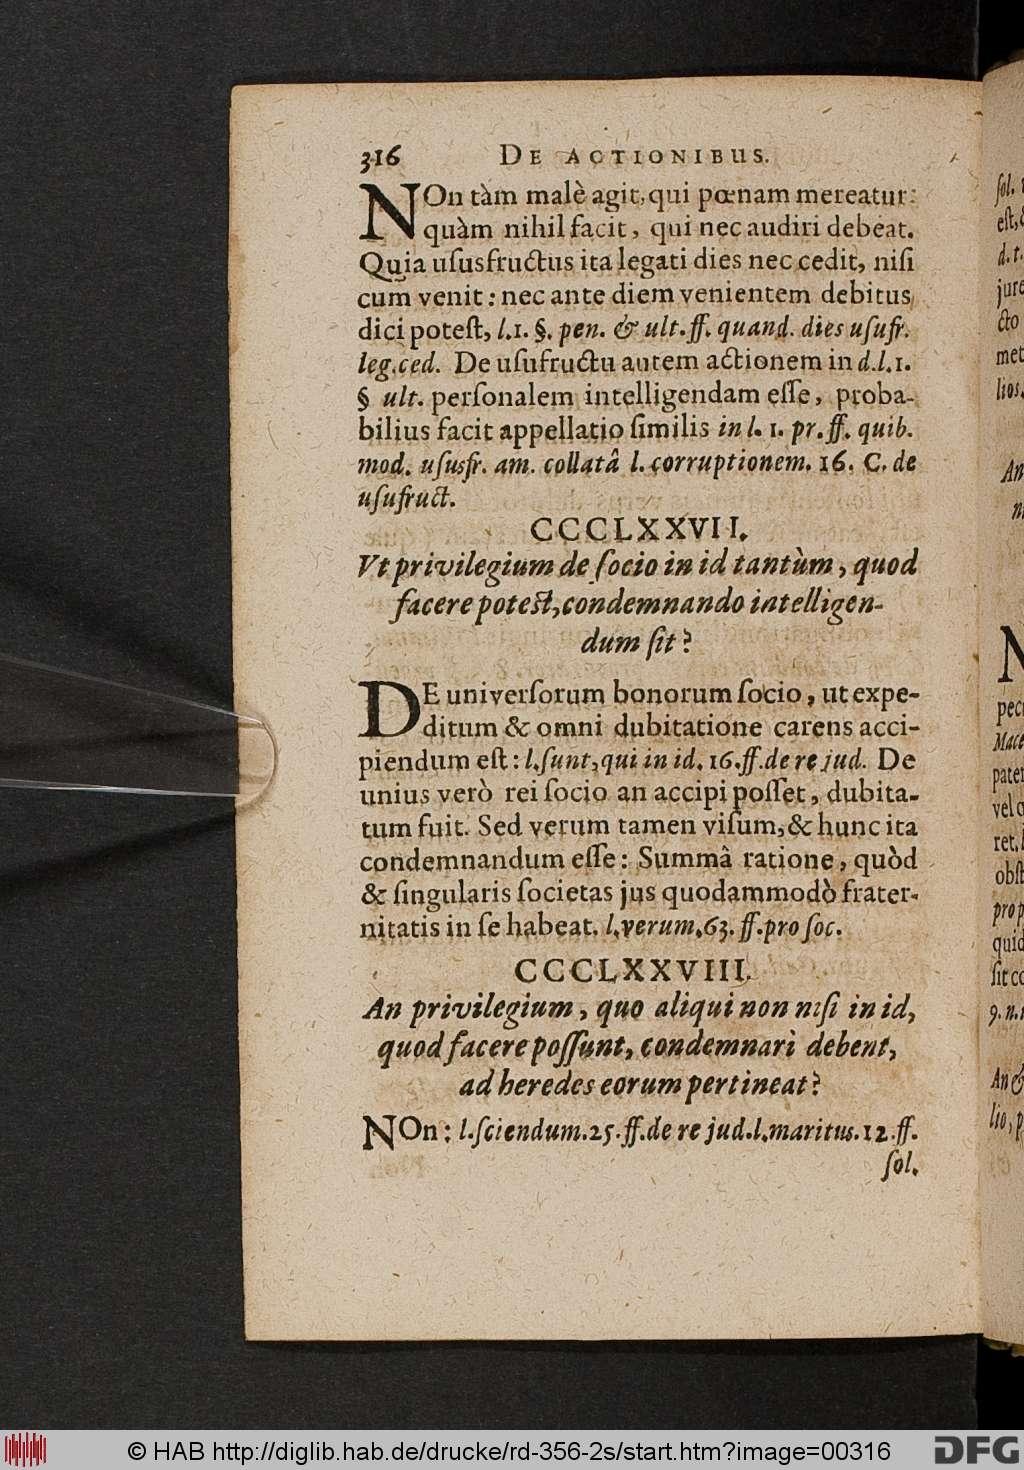 316 DE ACTIONIBUS.
NOn tàm malè agit, qui pœnam mereatur:
quàm nihil facit, qui nec audiri debeat.
Quia uſusfructus ita legati dies nec cedit, niſi
cum venit: nec ante diem venientem debitus
dici poteſt, l.1. §. pen. & ult. ff. quand. dies uſufr.
leg. ced. De uſufructu autem actionem in d.l.1.
§ ult. perſonalem intelligendam eſſe, proba-
bilius facit appellatio ſimilis in l. 1. pr. ff. quib.
mod. uſusfr. am. collatâ l. corruptionem. 16. C. de
uſufruct.
CCCLXXVII.
Vt privilegium de ſocio in id tantùm, quod
facere poteſt, condemnando intelligen-
dum ſit?
DE univerſorum bonorum ſocio, ut expe-
ditum & omni dubitatione carens acci-
piendum eſt: l. ſunt, qui in id. 16. ff. de re jud. De
unius verò rei ſocio an accipi poſſet, dubita-
tum fuit. Sed verum tamen viſum, & hunc ita
condemnandum eſſe: Summâ ratione, quòd
& ſingularis ſocietas jus quodammodò frater-
nitatis in ſe habeat. l. verum. 63. ff. pro ſoc.
CCCLXXVIII.
An privilegium, quo aliqui non niſi in id,
quod facere poſſunt, condemnari debent,
ad heredes eorum pertineat?
NOn: l. ſciendum. 25. ff. de re jud. l. maritus. 12. ff.
ſol.
© HAB http://diglib.hab.de/drucke/rd-356-2s/start.htm?image=00316
DFG